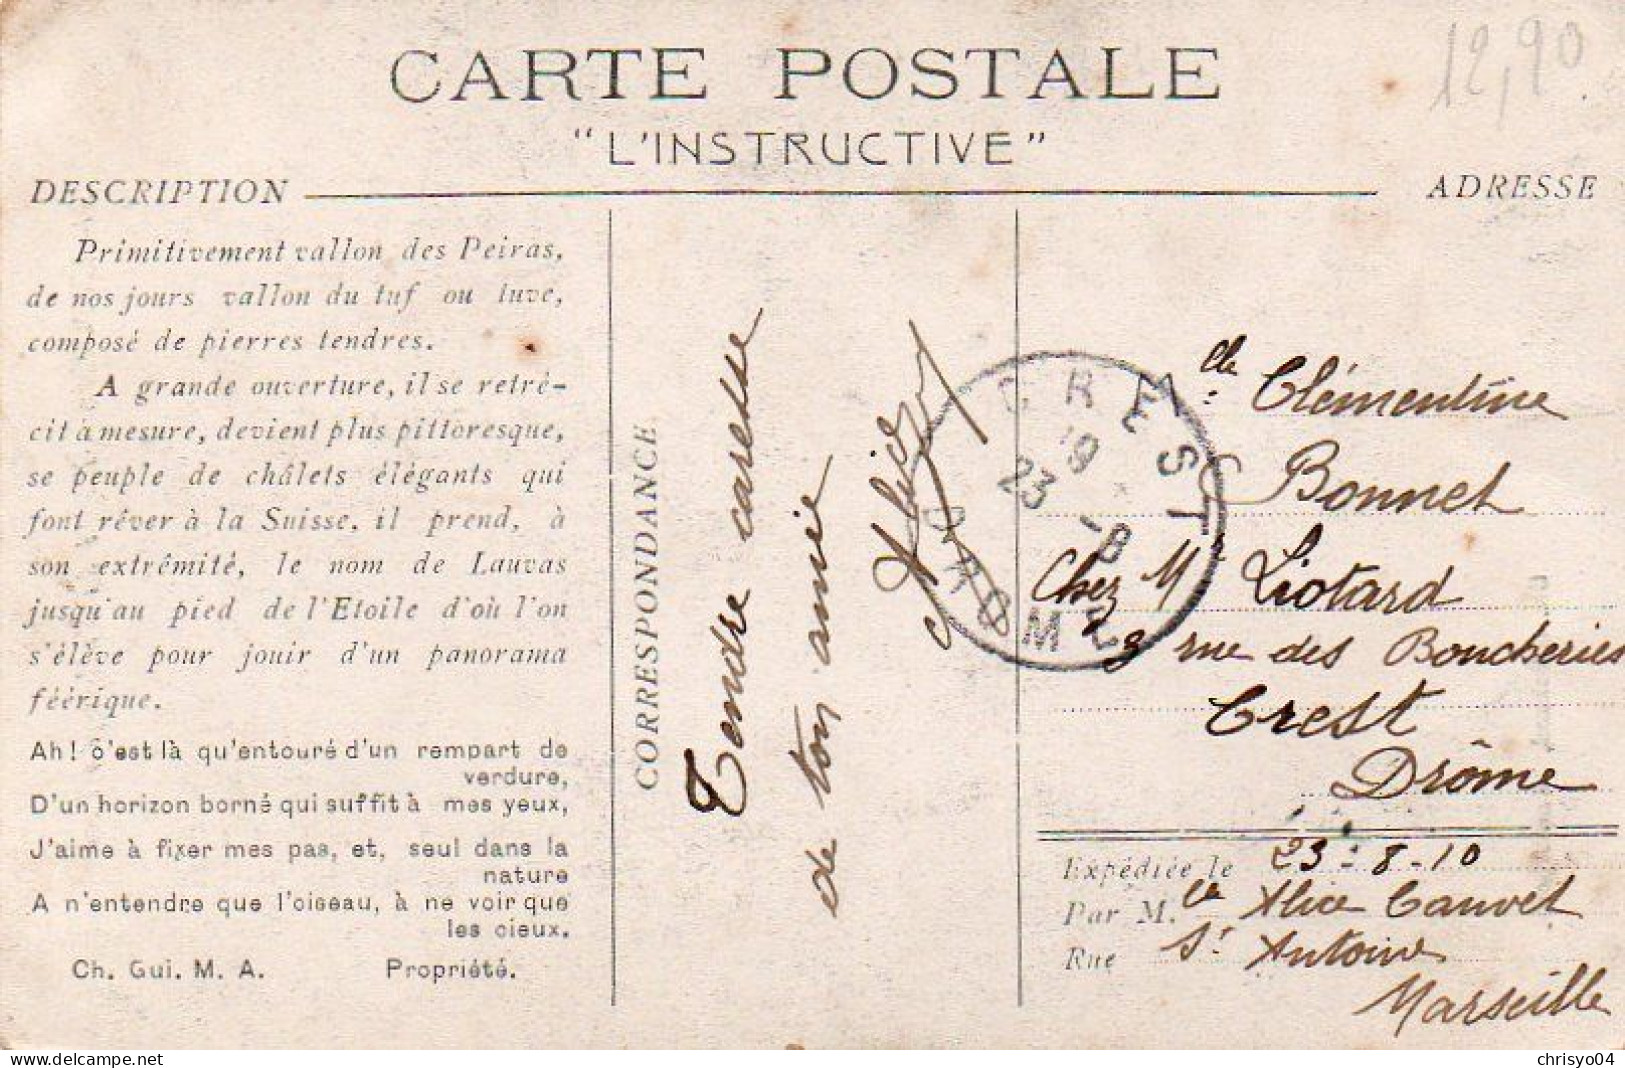 12,90
CARTE POSTALE
"L'INSTRUCTIVE"
DESCRIPTION
ADRESSE
Primitivement vallon des Peiras,
de nos jours vallon du tuf ou tuve,
composé de pierres tendres.
A grande ouverture, il se rétré-
cit à mesure, devient plus pittoresque,
se peuple de châlets élégants qui
font rêver à la Suisse, il prend, à
son extrémité, le nom de Lauvas
jusqu'au pied de l'Etoile d'où l'on
s'élève pour jouir d'un panorama
féérique.
Ah! c'est là qu'entouré d'un rempart de
verdure,
D'un horizon borné qui suffit à mes yeux,
J'aime à fixer mes pas, et, seul dans la
nature
A n'entendre que l'oiseau, à ne voir que
les cieux.
Ch. Gui. M. A. Propriété.
CORRESPONDANCE
Tendre caresse
de ton amie
Alice
CREST
19
23 -8
DROME
Clle Clémentine
Bonnet
Chez M Liotard
3 rue des Boucheries
Crest
Drôme
Expédiée le 23-8-10
Par M.lle Alice Cauvet
Rue St Antoine
Marseille
chrisyo04